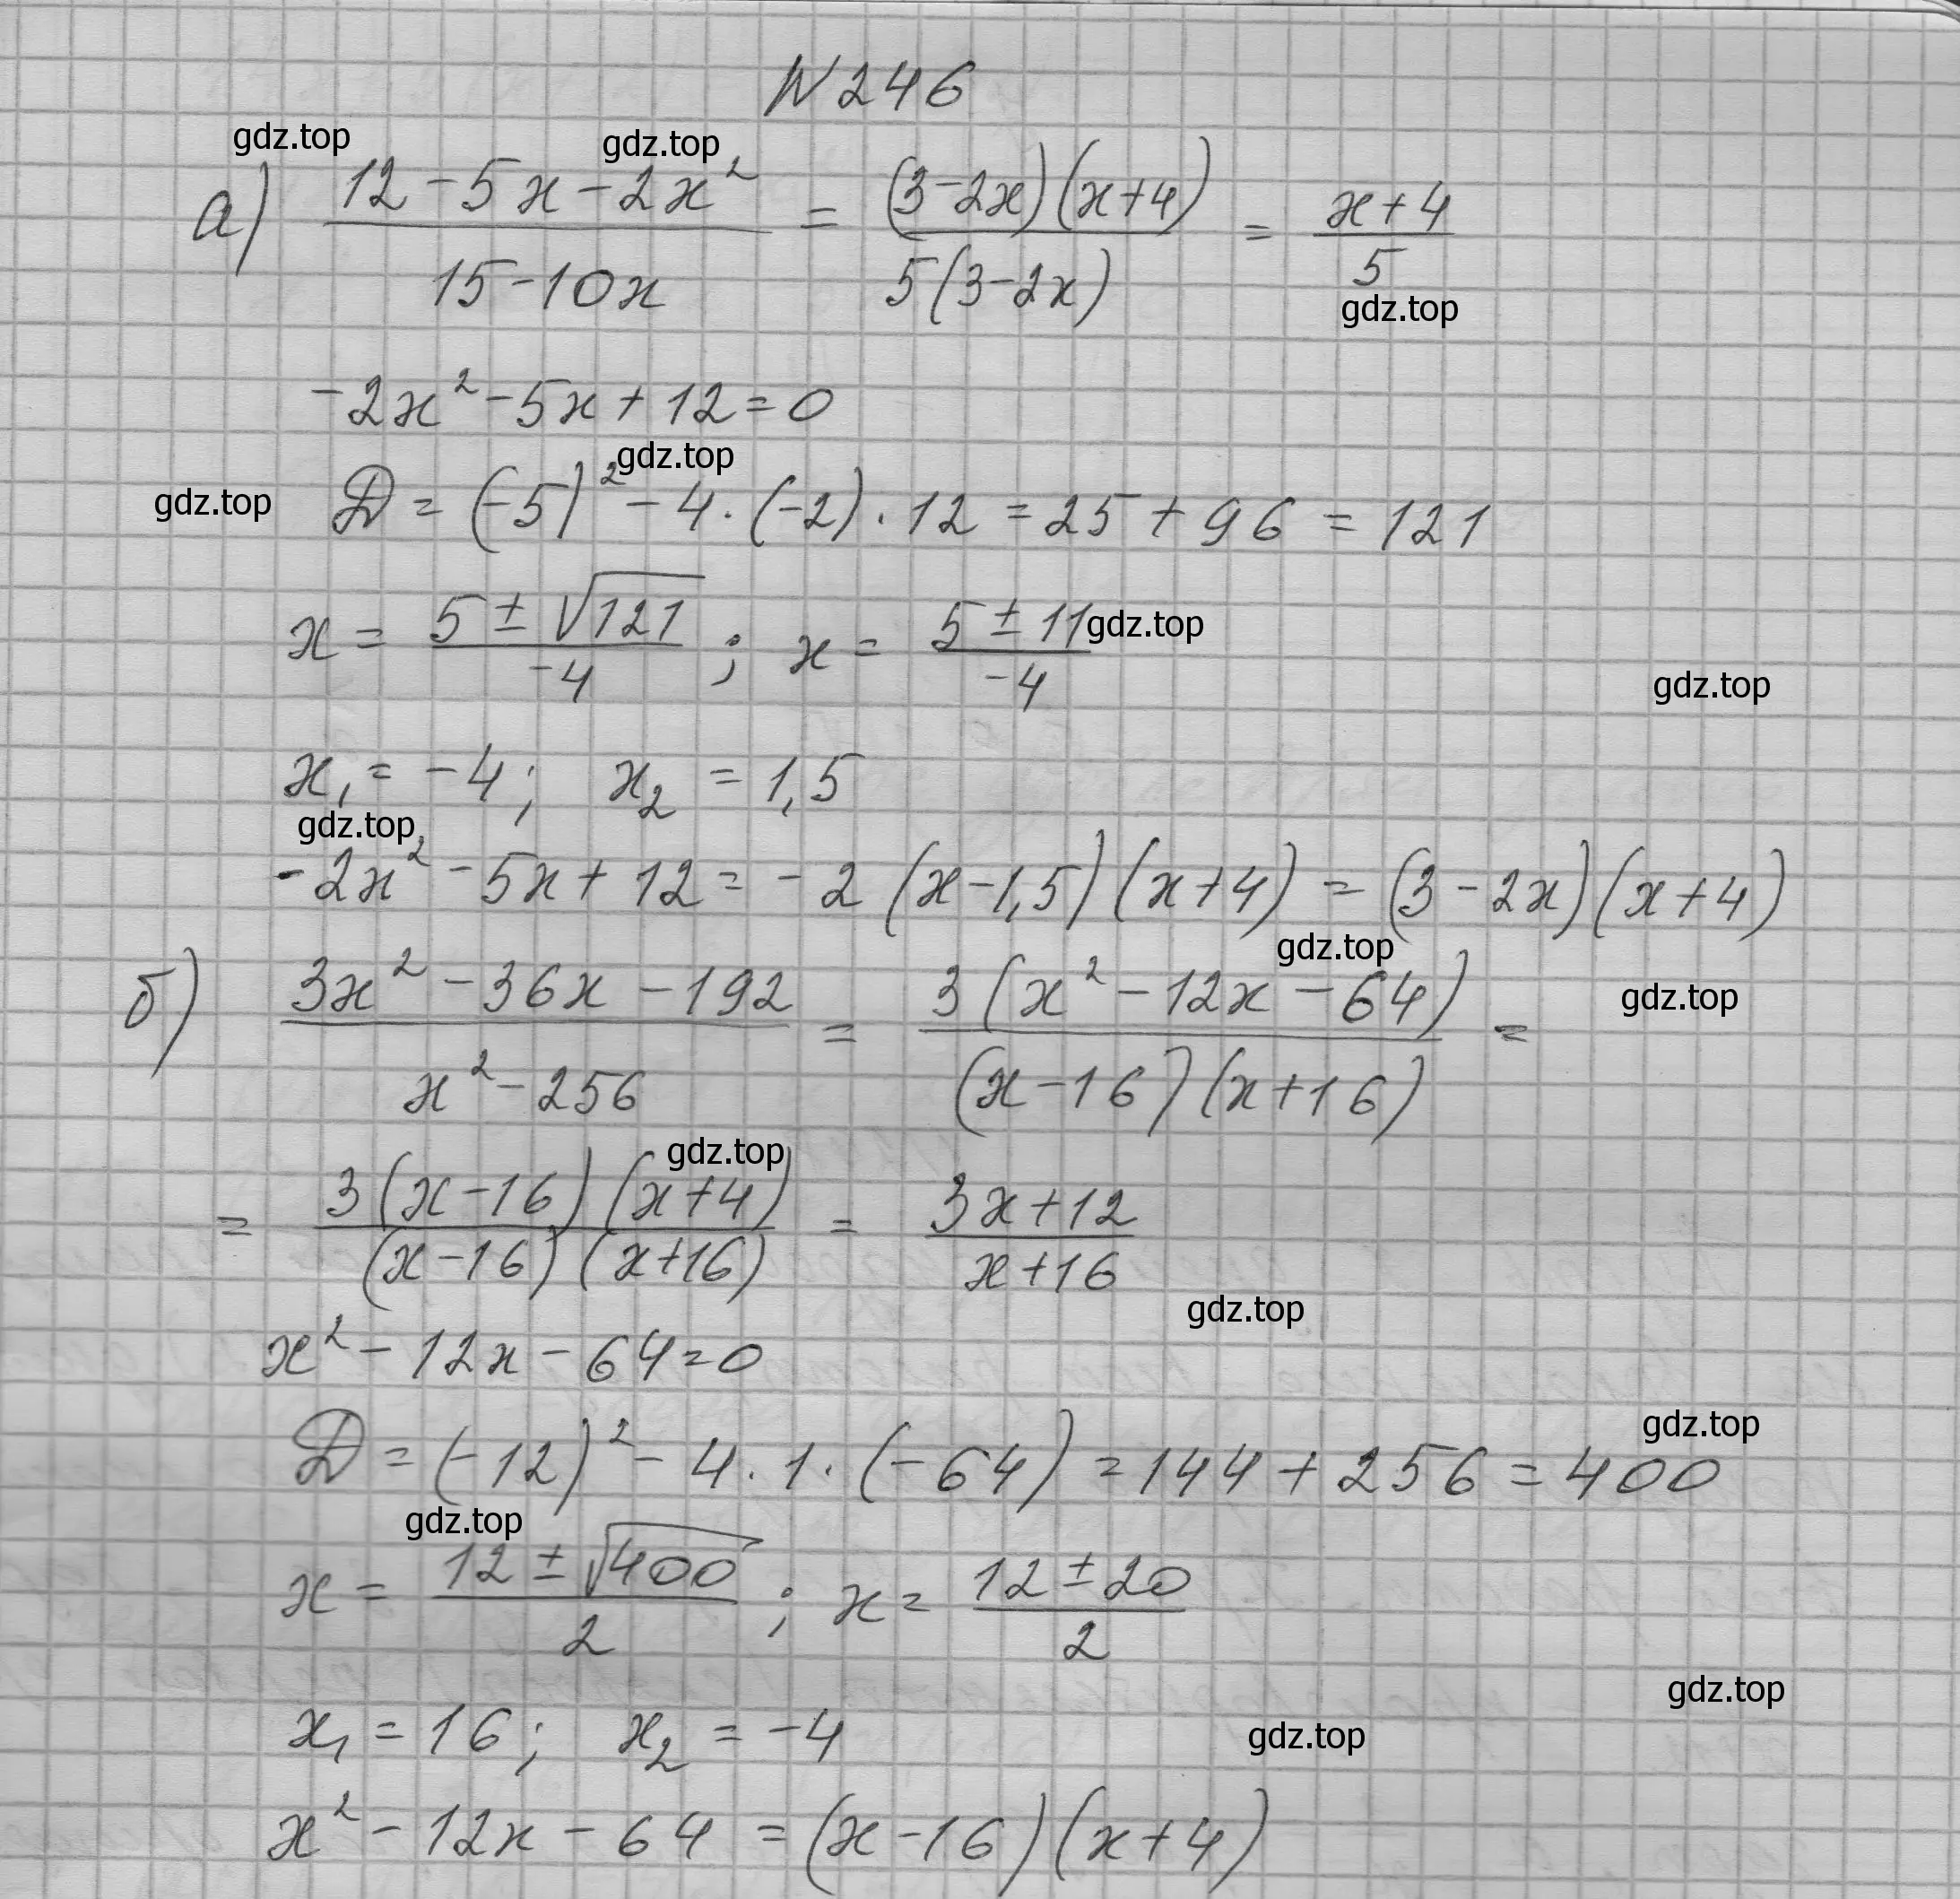 N 246
gdz.top gdz.top
а) (12 - 5x - 2x²)/(15 - 10x) = ((3 - 2x)(x + 4))/(5(3 - 2x)) = (x + 4)/5
gdz.top
-2x² - 5x + 12 = 0
gdz.top
gdz.top
D = (-5)² - 4 · (-2) · 12 = 25 + 96 = 121
x = (5 ± √121)/-4 ; x = (5 ± 11)/-4
gdz.top
gdz.top
x₁ = -4; x₂ = 1,5
gdz.top
-2x² - 5x + 12 = -2 (x - 1,5)(x + 4) = (3 - 2x)(x + 4)
gdz.top
б) (3x² - 36x - 192)/(x² - 256) = (3(x² - 12x - 64))/((x - 16)(x + 16)) =
gdz.top
gdz.top
= (3(x - 16)(x + 4))/((x - 16)(x + 16)) = (3x + 12)/(x + 16)
gdz.top
x² - 12x - 64 = 0
gdz.top
D = (-12)² - 4 · 1 · (-64) = 144 + 256 = 400
gdz.top
x = (12 ± √400)/2 ; x = (12 ± 20)/2
gdz.top
x₁ = 16; x₂ = -4
gdz.top
x² - 12x - 64 = (x - 16)(x + 4)